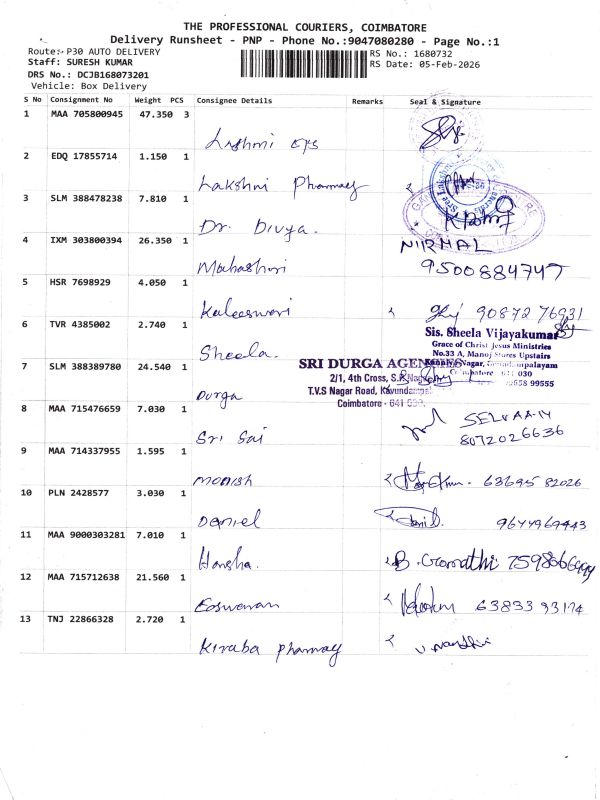 THE PROFESSIONAL COURIERS, COIMBATORE
Delivery Runsheet - PNP - Phone No.:9047080280 - Page No.:1
Route: P30 AUTO DELIVERY
RS No.: 1680732
Staff: SURESH KUMAR
RS Date: 05-Feb-2026
DRS No.: DCJB168073201
Vehicle: Box Delivery
S No Consignment No Weight PCS Consignee Details Remarks Seal & Signature
1 MAA 705800945 47.350 3
2 EDQ 17855714 1.150 1
Lakshmi Pharmacy
3 SLM 388478238 7.810 1
Dr. Divya.
4 IXM 303800394 26.350 1
NIRMAL
9500884747
5 HSR 7698929 4.050 1
Kaleeswari
90872 76931
6 TVR 4385002 2.740 1
Sheela.
Sis. Sheela Vijayakumar
Grace of Christ Jesus Ministries
No.33 A, Manoj Stores Upstairs
7 SLM 388389780 24.540 1
Durga
SRI DURGA AGENCIES
2/1, 4th Cross,
T.V.S Nagar Road,
Coimbatore - 641
8 MAA 715476659 7.030 1
Sri Sai
SELVAAN
8072026636
9 MAA 714337955 1.595 1
monish
63695 82026
10 PLN 2428577 3.030 1
Daniel
11 MAA 9000303281 7.010 1
Harsha.
B. Gomathi
12 MAA 715712638 21.560 1
Easwaran
13 TNJ 22866328 2.720 1
Kiraba pharmacy